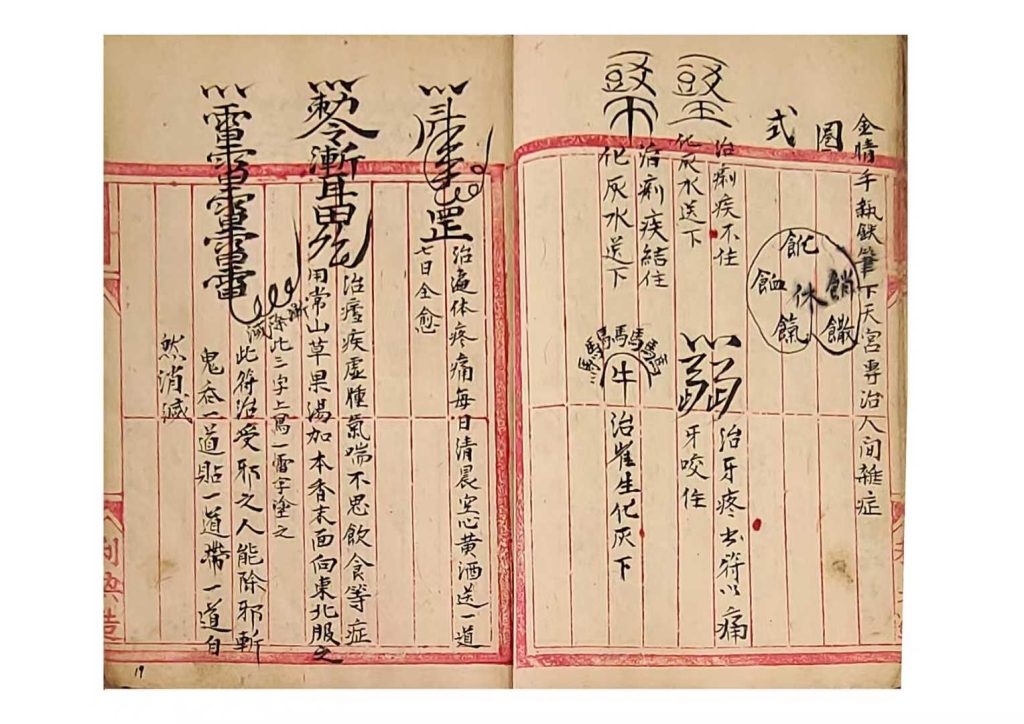 金情手執鉄筆下天宮專治人间雜症
圈式
休
治痢疾不住
化灰水送下
治痢疾結住
化灰水送下
治牙疼书符以痛
牙咬住
馬馬馬馬馬
牛
治崔生化灰下
罡
治遍体疼痛每日清晨空心黄酒送一道
七日全愈
治瘧疾虛腫氣喘不思飲食等症
用常山草果湯加本香末面向東北服之
斬
除此三字上寫一雷字塗之
滅
雷
此符治受邪之人能除邪斬
鬼吞一道貼一道帶一道自
然消滅
利
造
19